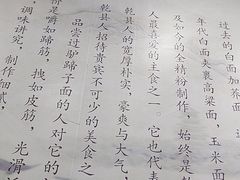 过去的白面加荞面
年代白面夹裹高粱面，玉米面
及如今的全精粉制作，始终是乾
人最喜爱的主食之一。它也代表
乾县人的宽厚朴实、豪爽与大气，
乾县人招待贵宾不可少的美食之
品尝过驴蹄子面的人对它的
是嚼如蹄筋，拽如皮筋，
，调味讲究，制作细腻，
光滑